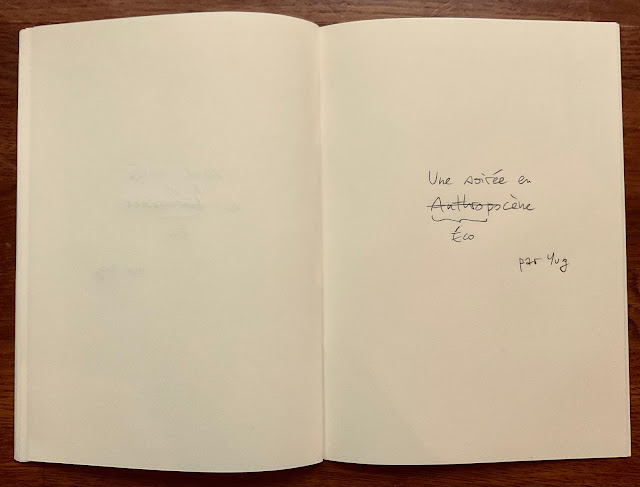 Une soirée en
Anthropocène
Éco
par Yug